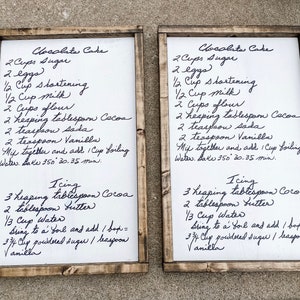 Chocolate Cake
2 Cups Sugar
2 eggs
1/2 Cup shortening
1/2 Cup Milk
2 Cups flour
2 heaping tablespoon Cocoa
2 teaspoon soda
2 teaspoon Vanilla
Mix together and add 1 Cup boiling
Water bake 350° 20-35 min.
Icing
3 heaping tablespoon Cocoa
2 tablespoon butter
1/3 Cup Water
bring to a boil and add 1 box=
3 3/4 Cup powdered sugar 1 teaspoon
Vanilla
Chocolate Cake
2 Cups Sugar
2 eggs
1/2 Cup shortening
1/2 Cup Milk
2 Cups flour
2 heaping tablespoon Cocoa
2 teaspoon soda
2 teaspoon Vanilla
Mix together and add 1 Cup boiling
Water bake 350° 20-35 min.
Icing
3 heaping tablespoon Cocoa
2 tablespoon butter
1/3 Cup Water
bring to a boil and add 1 box=
3 3/4 Cup powdered sugar 1 teaspoon
Vanilla